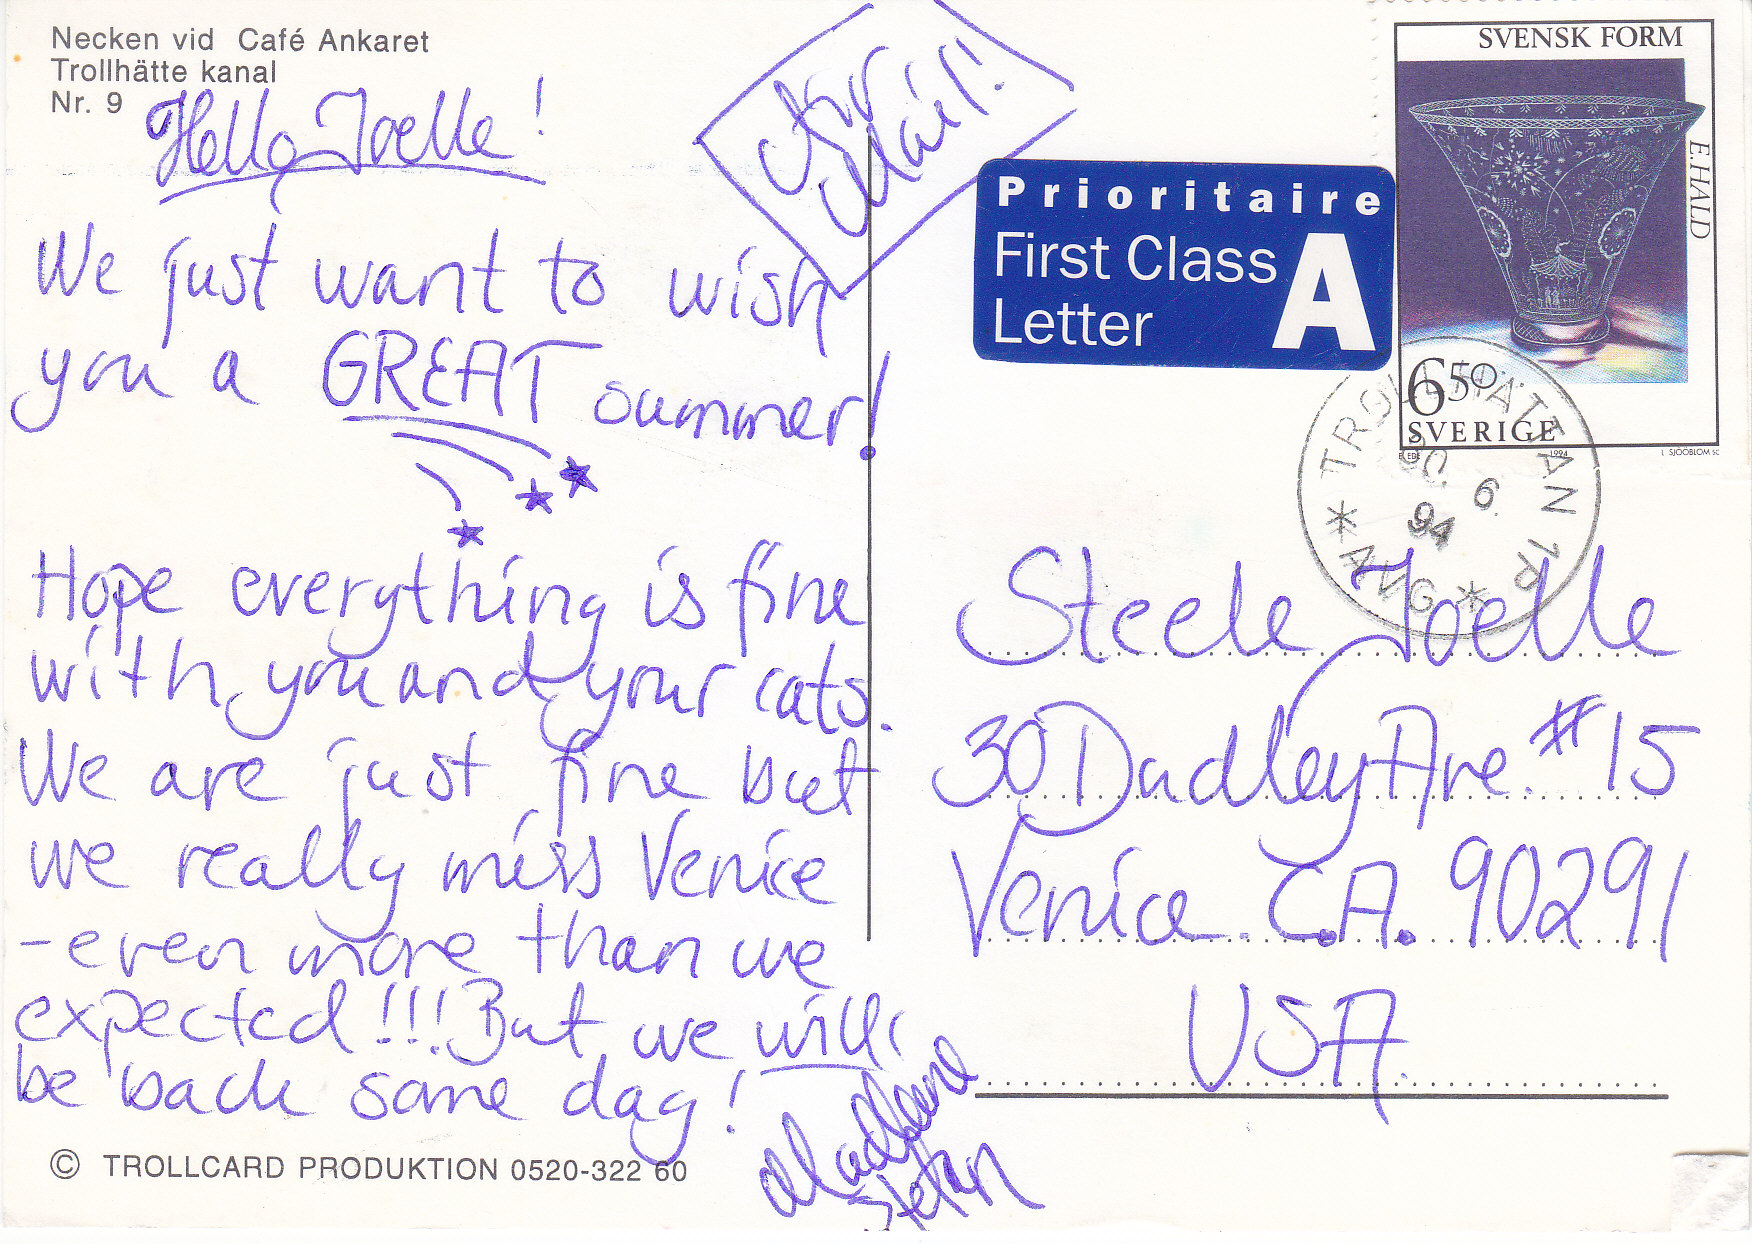 Necken vid Café Ankaret
Trollhätte kanal
Nr. 9
Hello Joelle!
Air
Mail!
We just want to wish
you a GREAT summer!
Hope everything is fine
with you and your cats.
We are just fine but
we really miss Venice
-even more than we
expected!!! But we will
be back some day!
Stefan
© TROLLCARD PRODUKTION 0520-322 60
Prioritaire
First Class
Letter
A
SVENSK FORM
E.HALD
650
SVERIGE
1994
TROLLHÄTTAN 1R
6.
94
* AVG *
Steele Joelle
30 Dudley Ave. #15
Venice. C.A. 90291
USA.